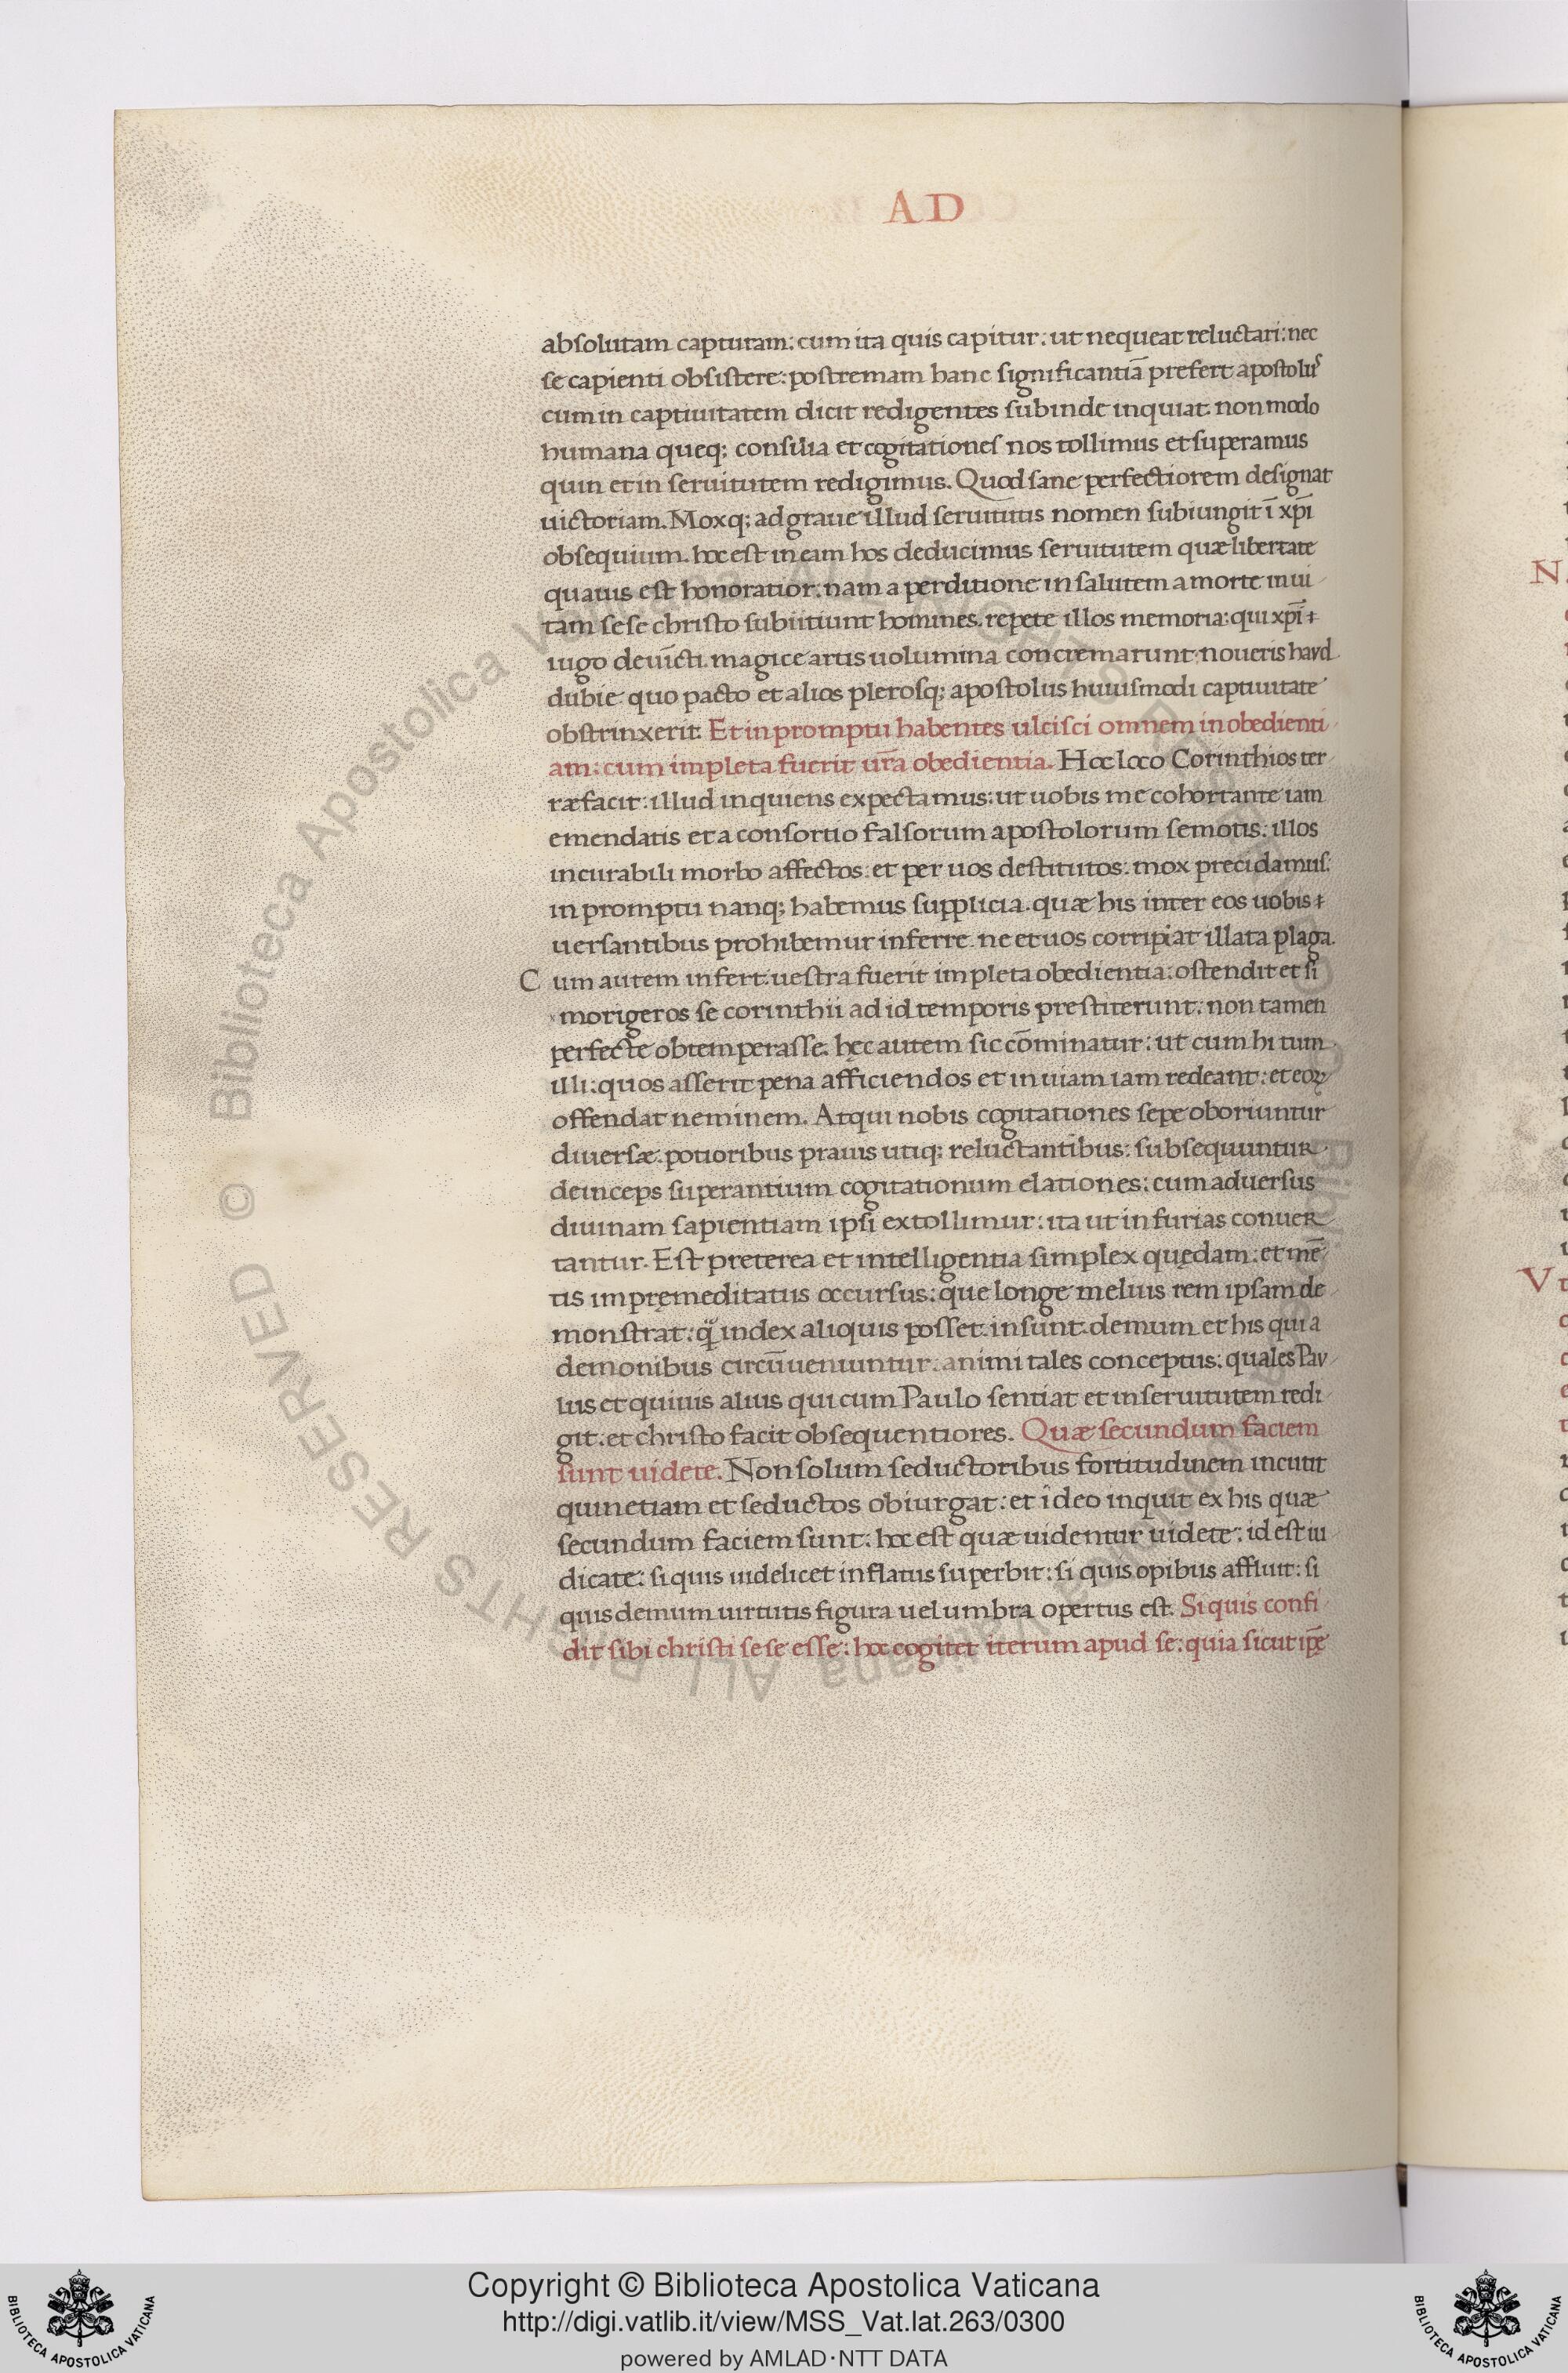 AD
absolutam capturam: cum ita quis capitur: ut nequeat reluctari: nec
se capienti obsistere: postremam hanc significantiā prefert apostolus
cum in captiuitatem dicit redigentes subinde inquiat. non modo
humana queq; consilia et cogitationes nos tollimus et superamus
quin et in seruitutem redigimus. Quod sane perfectiorem designat
uictoriam. Moxq; ad graue illud seruitutis nomen subiungit ī xp̄i
obsequium. hoc est in eam hos deducimus seruitutem quæ libertate
quauis est honoratior: nam a perditione in salutem a morte in ui
tam sese christo subiitiunt homines. repete illos memoria: qui xp̄i
iugo deuīcti. magice artis uolumina concremarunt. noueris havd
dubie quo pacto et alios plerosq; apostolus huiusmodi captiuitate
obstrinxerit. Et in promptu habentes ulcisci omnem inobedienti
am: cum impleta fuerit ur̄a obedientia. Hoc loco Corinthios ter
ræfacit: illud inquiens expectamus: ut uobis me cohortante iam
emendatis et a consortio falsorum apostolorum semotis: illos
incurabili morbo affectos: et per uos destitutos: mox precidamus:
in promptu nanq; habemus supplicia. quæ his inter eos uobis
uersantibus prohibemur inferre. ne et uos corripiat illata plaga.
Cum autem infert: uestra fuerit impleta obedientia: ostendit et si
morigeros se corinthii ad id temporis prestiterunt: non tamen
perfecte obtemperasse. hęc autem sic cōminatur: ut cum hi tum
illi: quos asserit pena afficiendos et in uiam iam redeant: et eoꝝ
offendat neminem. Atqui nobis cogitationes sepe oboriuntur
diuersæ. potioribus prauis utiq; reluctantibus: subsequuntur
deinceps superantium cogitationum elationes: cum aduersus
diuinam sapientiam ipsi extollimur: ita ut in furias conuer
tantur. Est preterea et intelligentia simplex quędam: et mē
tis impręmeditatus occursus: que longe melius rem ipsam de
monstrat: q̈ index aliquis posset. insunt demum et his qui a
demonibus circūueniuntur: animi tales conceptus: quales Pav
lus et quiuis alius qui cum Paulo sentiat et in seruitutem redi
git: et christo facit obsequentiores. Quæ secundum faciem
sunt uidete. Non solum seductoribus fortitudinem incutit
quin etiam et seductos obiurgat: et ideo inquit ex his quæ
secundum faciem sunt: hoc est quæ uidentur uidete: id est iu
dicate: si quis uidelicet inflatus superbit: si quis opibus affluit: si
quis demum uirtutis figura uel umbra opertus est. Si quis confi
dit sibi christi sese esse: hoc cogitet iterum apud se: quia sicut ip̄e
N
V
© Biblioteca Apostolica Vaticana ALL RIGHTS RESERVED
Copyright © Biblioteca Apostolica Vaticana
http://digi.vatlib.it/view/MSS_Vat.lat.263/0300
powered by AMLAD·NTT DATA
BIBLIOTECA APOSTOLICA VATICANA
BIBLIOTECA APOSTOLICA VATICANA